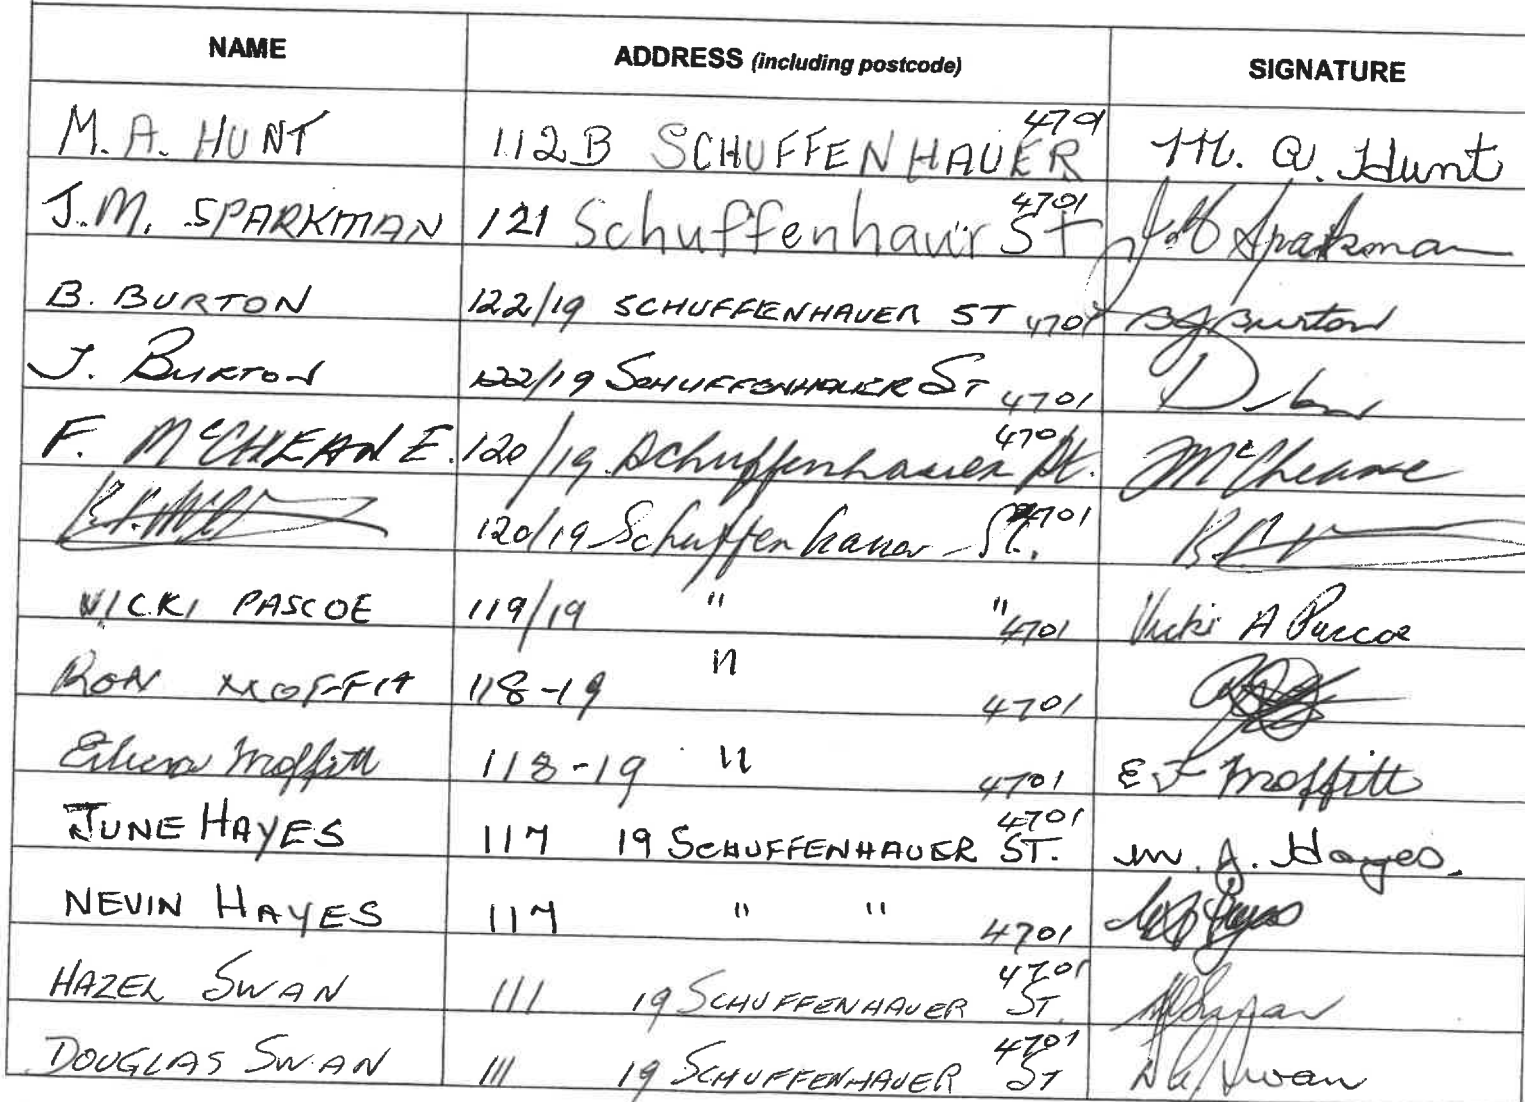 NAME ADDRESS (including postcode) SIGNATURE
M. A. HUNT 112B SCHUFFENHAUER 4701 M. A. Hunt
J. M. SPARKMAN 121 Schuffenhaur St 4701 J M Sparkman
B. BURTON 122/19 SCHUFFENHAUER ST 4701 B J Burton
J. BURTON 122/19 SCHUFFENHAUER ST 4701
F. McCHEANE. 120/19 Schuffenhauer St. 4701 McCheane
120/19 Schuffenhauer St. 4701
VICKI PASCOE 119/19 " " 4701 Vicki A Pascoe
RON MOFFIT 118-19 " 4701
Eileen Moffitt 118-19 " 4701 E F Moffitt
JUNE HAYES 117 19 SCHUFFENHAUER ST. 4701 M. J. Hayes.
NEVIN HAYES 117 " " 4701
HAZEL SWAN 111 19 SCHUFFENHAUER ST. 4701 Swan
DOUGLAS SWAN 111 19 SCHUFFENHAUER ST 4701 Swan